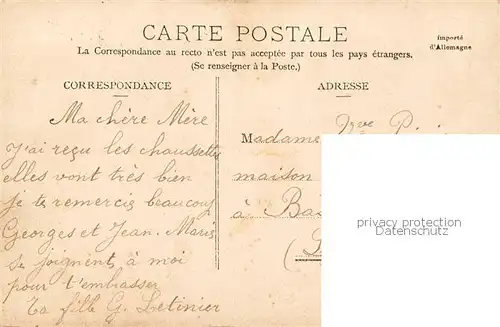 CARTE POSTALE
importé
d'Allemagne
La Correspondance au recto n'est pas acceptée par tous les pays étrangers.
(Se renseigner à la Poste.)
CORRESPONDANCE
ADRESSE
Ma chère Mère
J'ai reçu les chaussettes
elles vont très bien
je te remercis beaucoup
Georges et Jean. Marie
se joignent à moi
pour t'embrasser
Ta fille G. Letinier
Madame Vve P.
maison
à Bas
privacy protection
Datenschutz